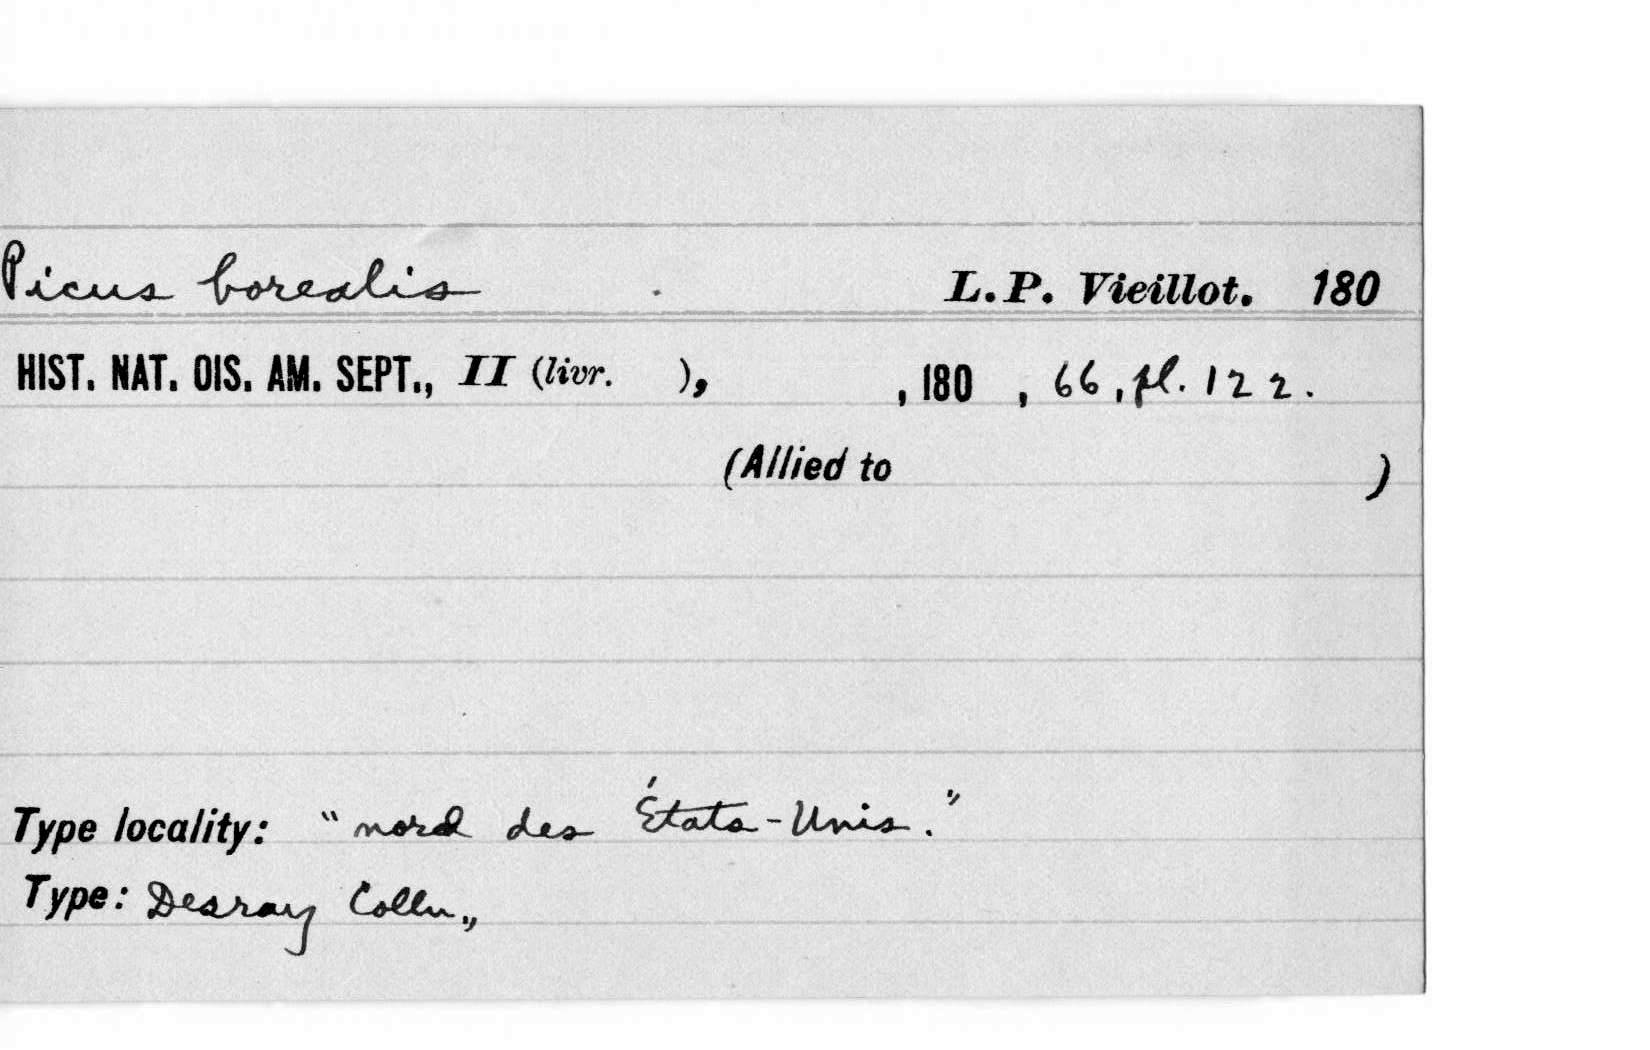 Picus borealis . L. P. Vieillot. 180
HIST. NAT. OIS. AM. SEPT., II (livr. ), , 180 , 66, pl. 122.
(Allied to )
Type locality: "nord des États-Unis."
Type: Desray Colln.,